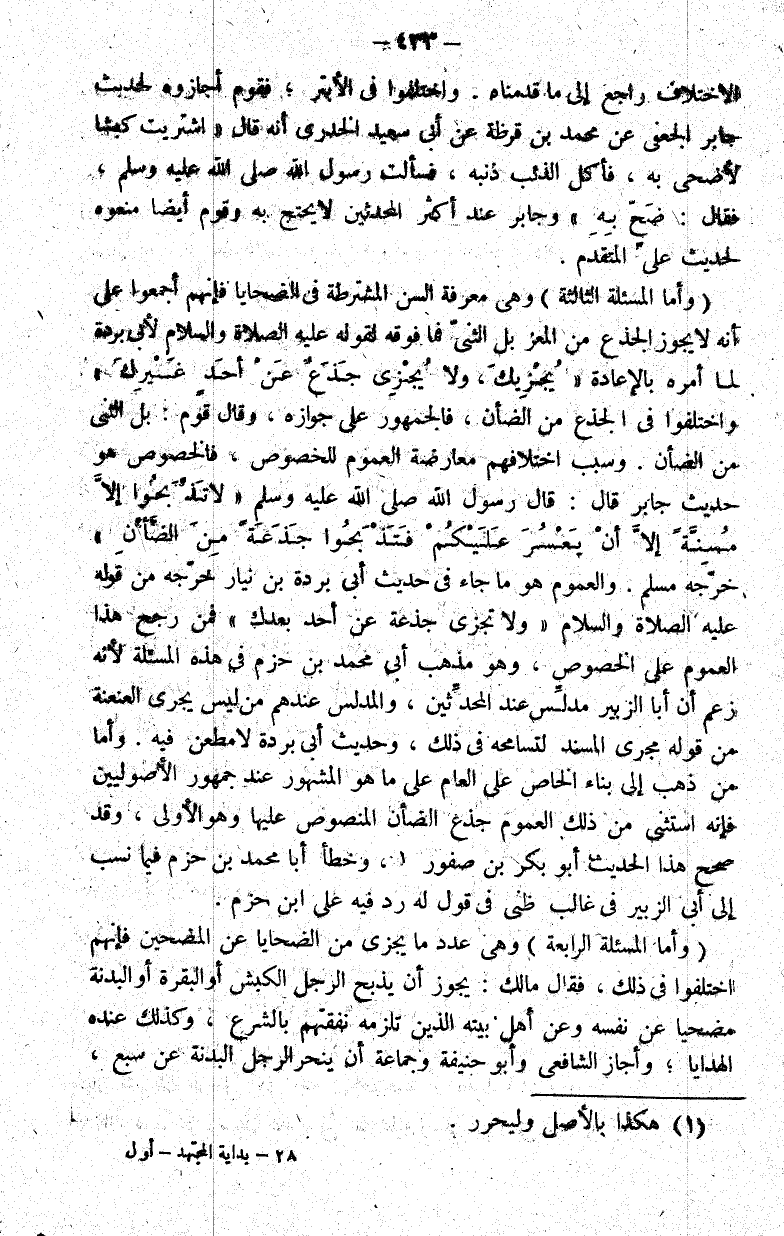 – ٤٣٣ –
الاختلاف راجع إلى ما قدمناه . واختلفوا فى الأبتر ؛ فقوم أجازوه لحديث
جابر الجعفى عن محمد بن قرظة عن أبى سعيد الخدرى أنه قال « اشتريت كبشا
لأضحى به ، فأكل الذئب ذنبه ، فسألت رسول الله صلى الله عليه وسلم ؛
فقال : ضَحّ بِهِ » وجابر عند أكثر المحدثين لايحتج به وقوم أيضا منعوه
لحديث علىّ المتقدم .
( وأما المسئلة الثالثة ) وهى معرفة السن المشترطة فى الضحايا فإنهم أجمعوا على
أنه لا يجوز الجذع من المعز بل الثنىّ فما فوقه لقوله عليه الصلاة والسلام لأبى بردة
لما أمره بالإعادة « يُجْزِيكَ ، ولا يُجْزِى جَذَعٌ عَنْ أحَدٍ غَيْرِكَ »
واختلفوا فى الجذع من الضأن ، فالجمهور على جوازه ، وقال قوم : بل الثنى
من الضأن . وسبب اختلافهم معارضة العموم للخصوص ، فالخصوص هو
حديث جابر قال : قال رسول الله صلى الله عليه وسلم « لاتَذْبَحُوا إلاَّ
مُسِنَّةً إلاَّ أنْ يَعْسُرَ عَلَيْكُمْ فَتَذْبَحُوا جَذَعَةً مِنَ الضَّأْنِ »
خرّجه مسلم . والعموم هو ما جاء فى حديث أبى بردة بن نيار خرّجه من قوله
عليه الصلاة والسلام « ولا تجزى جذعة عن أحد بعدك » فمن رجح هذا
العموم على الخصوص ، وهو مذهب أبى محمد بن حزم فى هذه المسئلة لأنه
زعم أن أبا الزبير مدلِّس عند المحدِّثين ، والمدلس عندهم من ليس يجرى العنعنة
من قوله مجرى المسند لتسامحه فى ذلك ، وحديث أبى بردة لامطعن فيه . وأما
من ذهب إلى بناء الخاص على العام على ما هو المشهور عند جمهور الأصوليين
فإنه استثنى من ذلك العموم جذع الضأن المنصوص عليها وهو الأولى ، وقد
صحح هذا الحديث أبو بكر بن صفور ١ ، وخطأ أبا محمد بن حزم فيما نسب
إلى أبى الزبير فى غالب ظنى فى قول له رد فيه على ابن حزم .
( وأما المسئلة الرابعة ) وهى عدد ما يجزى من الضحايا عن المضحين فإنهم
اختلفوا فى ذلك ، فقال مالك : يجوز أن يذبح الرجل الكبش أو البقرة أو البدنة
مضحيا عن نفسه وعن أهل بيته الذين تلزمه نفقتهم بالشرع ، وكذلك عنده
الهدايا ؛ وأجاز الشافعى وأبو حنيفة وجماعة أن ينحر الرجل البدنة عن سبع ،
(١) هكذا بالأصل وليحرر .
٢٨ – بداية المجتهد – أول